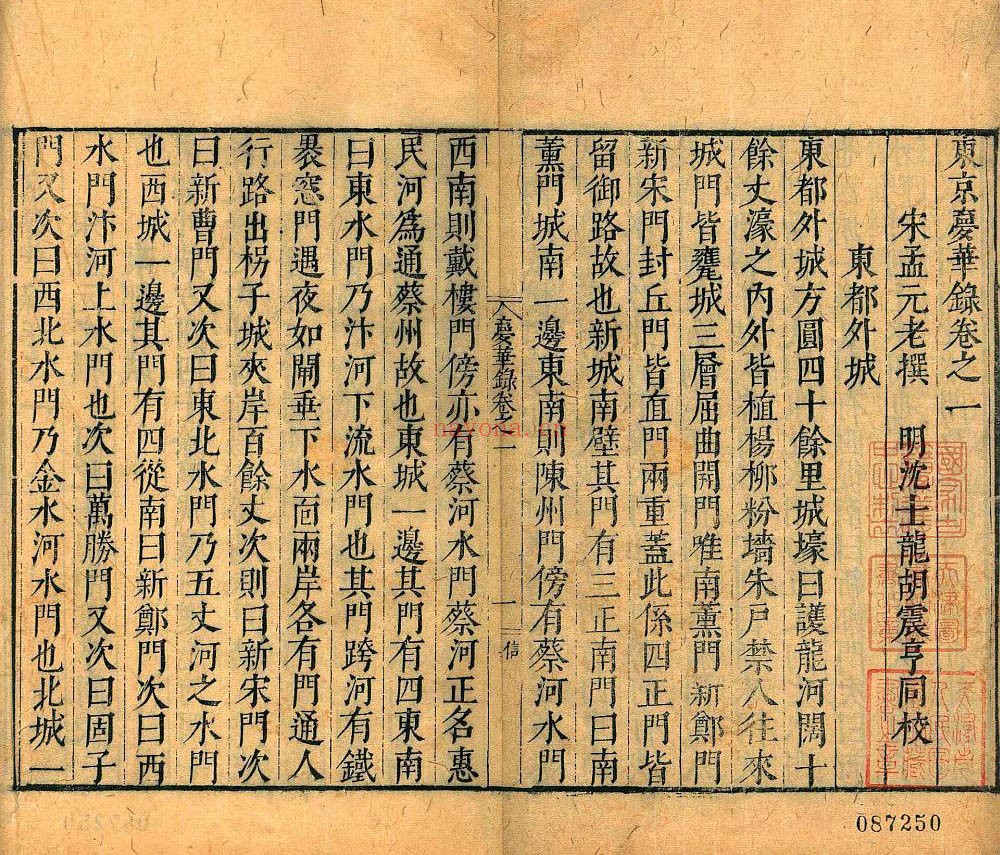 東京夢華錄卷之一
宋孟元老撰　明沈士龍胡震亨同校
東都外城
東都外城方圓四十餘里城壕曰護龍河闊十
餘丈濠之內外皆植楊柳粉墻朱戶禁人往來
城門皆甕城三層屈曲開門唯南薰門新鄭門
新宋門封丘門皆直門兩重蓋此係四正門皆
留御路故也新城南壁其門有三正南門曰南
薰門城南一邊東南則陳州門傍有蔡河水門
夢華錄卷之一
一
信
西南則戴樓門傍亦有蔡河水門蔡河正名惠
民河爲通蔡州故也東城一邊其門有四東南
曰東水門乃汴河下流水門也其門跨河有鐵
裹窓門遇夜如閘垂下水面兩岸各有門通人
行路出柺子城夾岸百餘丈次則曰新宋門次
曰新曹門又次曰東北水門乃五丈河之水門
也西城一邊其門有四從南曰新鄭門次曰西
水門汴河上水門也次曰萬勝門又次曰固子
門又次曰西北水門乃金水河水門也北城一
087250